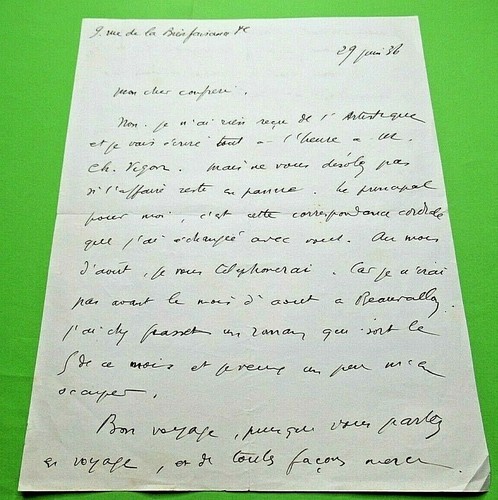 9. rue de la Bienfaisance
29 juin 36
Mon cher confrère.
Non. je n'ai rien reçu de l'Artistique
et je vais écrire tout à l'heure à M.
Ch. Vigor. Mais ne vous désolez pas
si l'affaire reste en panne. Le principal
pour moi, c'est cette correspondance cordiale
que j'ai échangée avec vous. Au mois
d'août, je vous téléphonerai. Car je n'irai
pas avant le mois d'août à Beauvallon.
J'ai un roman qui sort le
5 de ce mois et je veux un peu m'en
occuper.
Bon voyage, puisque vous partez
en voyage, et de toutes façons merci.